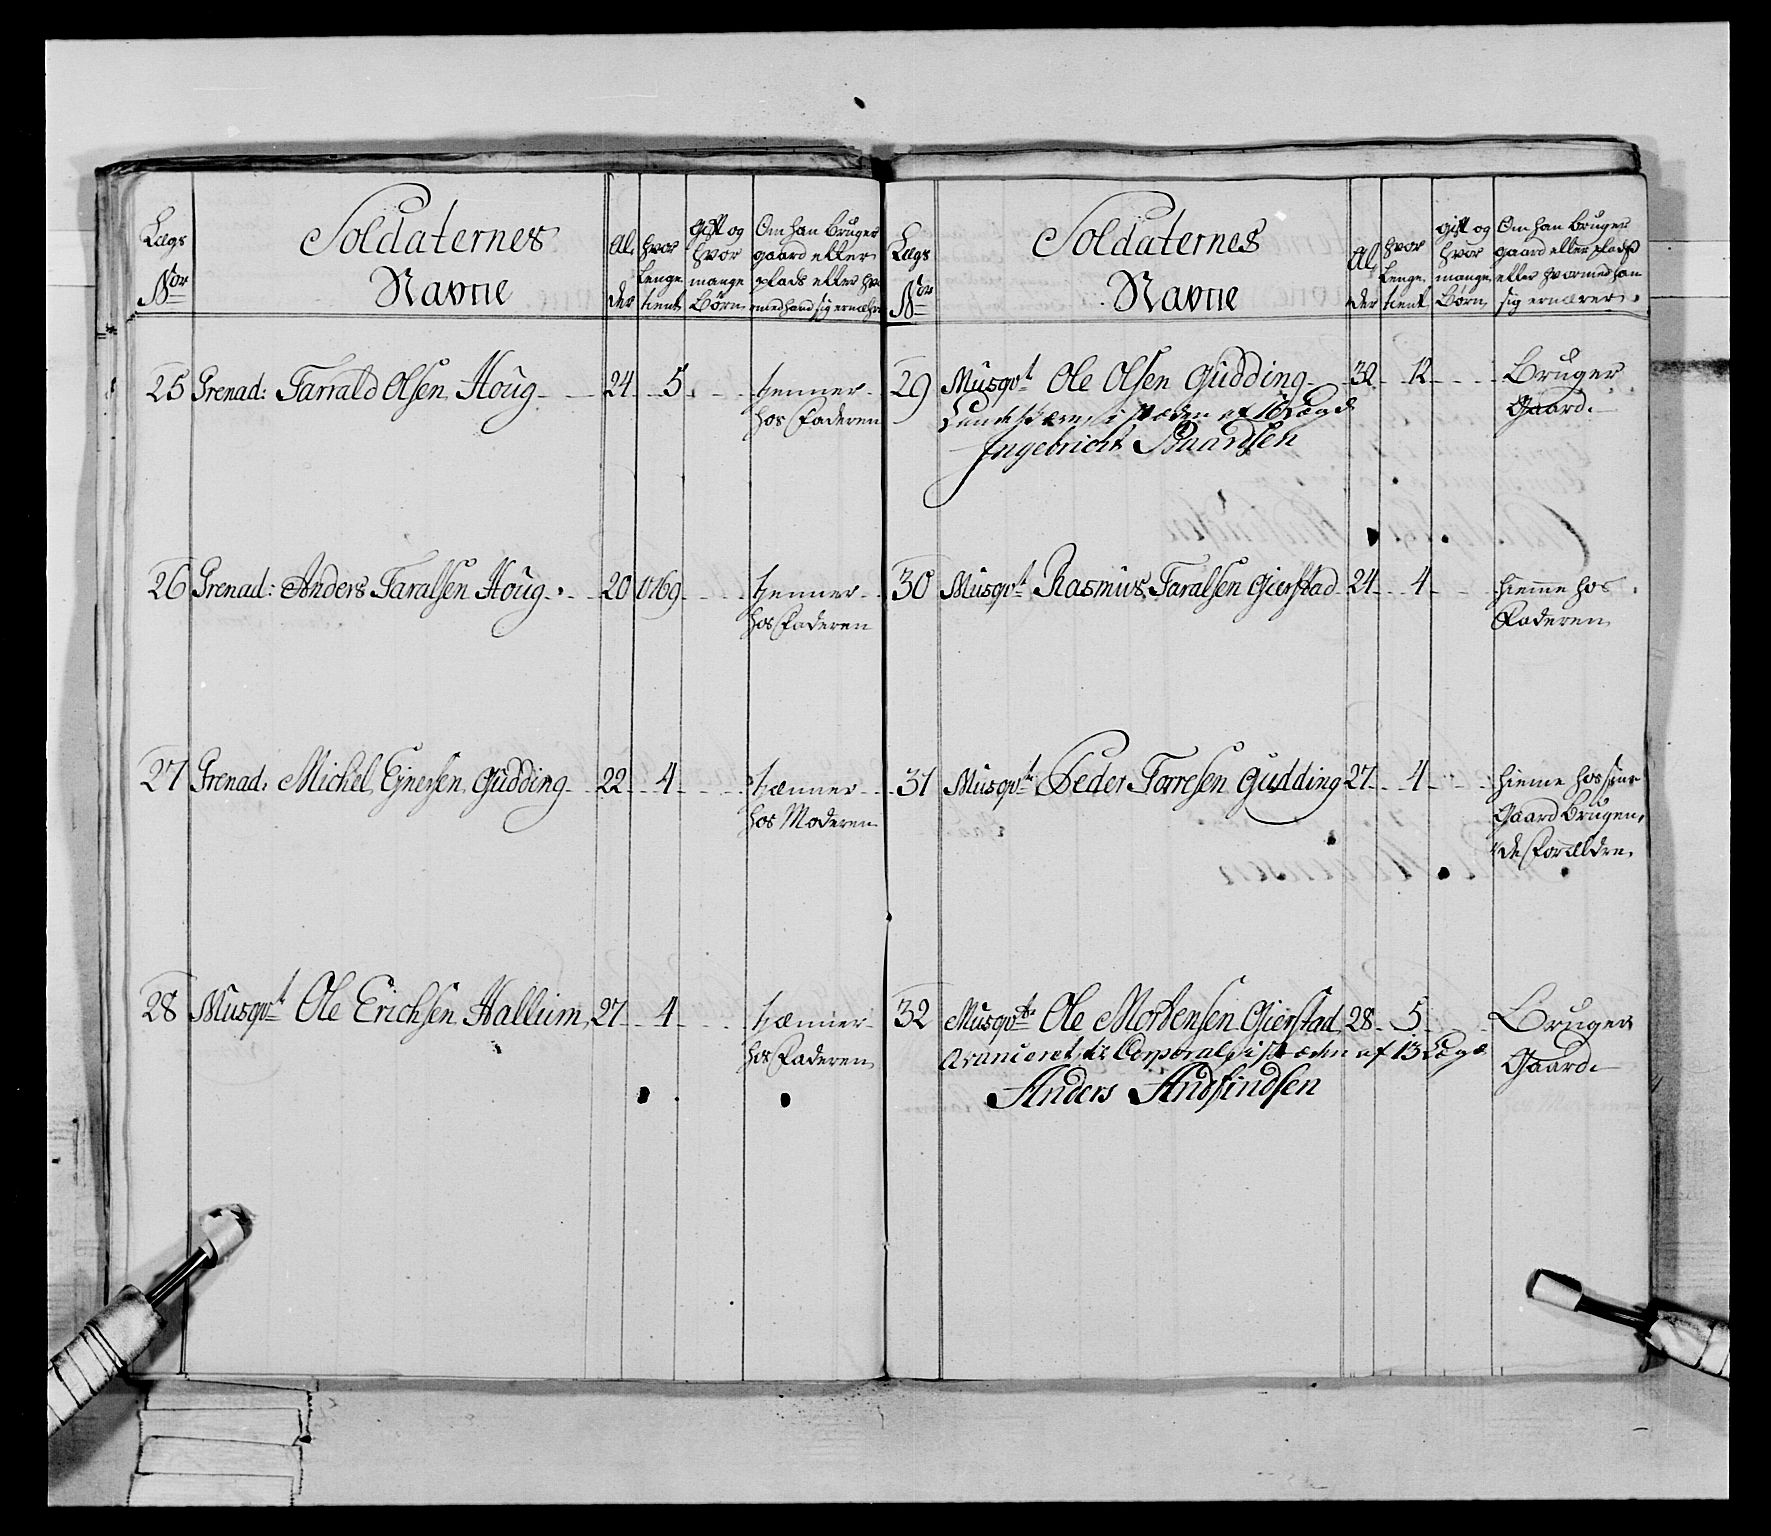 Lægs
Nor
Soldaternes
Navne
Al,
der
hvor
Lenge
tient
gift og
hvor
mange
Børn
Om han bruger
gaard eller
plads eller hvor
med hand sig ernæhrer
25 Grenad: Tarrald Olsen Houg 24 5 tienner
hos Faderen
26 Grenad: Anders Taralsen Houg 20 1769 tienner
hos Faderen
27 Grenad: Michel Ejnersen Gudding 22 4 tienner
hos Moderen
28 Musqvt Ole Erichsen Hallum 27 4 tienner
hos Faderen
Lægs
Nor
Soldaternes
Navne
Al,
der
hvor
Lenge
tient
gift og
hvor
mange
Børn
Om han bruger
gaard eller plads
eller hvormed han
sig ernærer
29 Musqvt Ole Olsen Gudding 32 12 Bruger
Gaard
i stæden af 16 Lægd
Ingebricht Baardsen
30 Musqvt Rasmus Taralsen Gierstad 24 4 hieme hos
Faderen
31 Musqvt Peder Torresen Gudding 27 4 hieme hos sine
Gaard brugen,
de Forældre
32 Musqvt Ole Mortensen Gierstad 28 5 Bruger
Gaard
Avanceret til Corporal i stæden af 13 Lægd
Anders Andfindsen